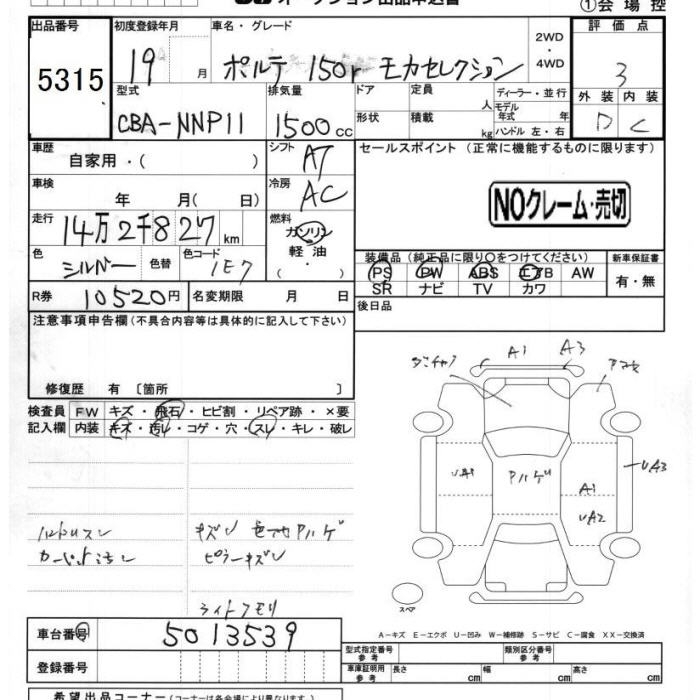 オークション出品申込書
①会場控
出品番号 初度登録年月 車名・グレード 2WD・4WD 評価点
5315 19 月 ポルテ 150r モカセレクション 3
型式 排気量 ドア 定員 人 ディーラー・並行 外装 内装
モデル年式 年
CBA-NNP11 1500cc 形状 積載 kg ハンドル 左・右 D C
車歴 シフト セールスポイント (正常に機能するものに限ります)
自家用・( ) AT
車検 冷房
年 月( 日) AC NOクレーム・売切
走行 燃料
14万2千827km ガソリン
軽油
( )
色 色替 色コード 装備品(純正品に限り○をつけてください) 新車保証書
シルバー 1E7 PS PW ABS エアB AW 有・無
SR ナビ TV カワ
R券 10520円 名変期限 月 日 後日品
注意事項申告欄(不具合内容等は具体的に記入して下さい)
修復歴 有 〔箇所 〕
検査員 FW キズ・飛石・ヒビ割・リペア跡・×要
記入欄 内装 キズ・汚レ・コゲ・穴・スレ・キレ・破レ
A1 A3
UA1 A1 UA3
UA2
ピラーキズ
スペア
A-キズ E-エクボ U-凹み W-補修跡 S-サビ C-腐食 XX-交換済
車台番号 5013539
登録番号
型式指定番号 参考 類別区分番号 参考
車庫証明用 参考 長さ cm 幅 cm 高さ cm
希望出品コーナー(コーナーは各会場により異なります。)